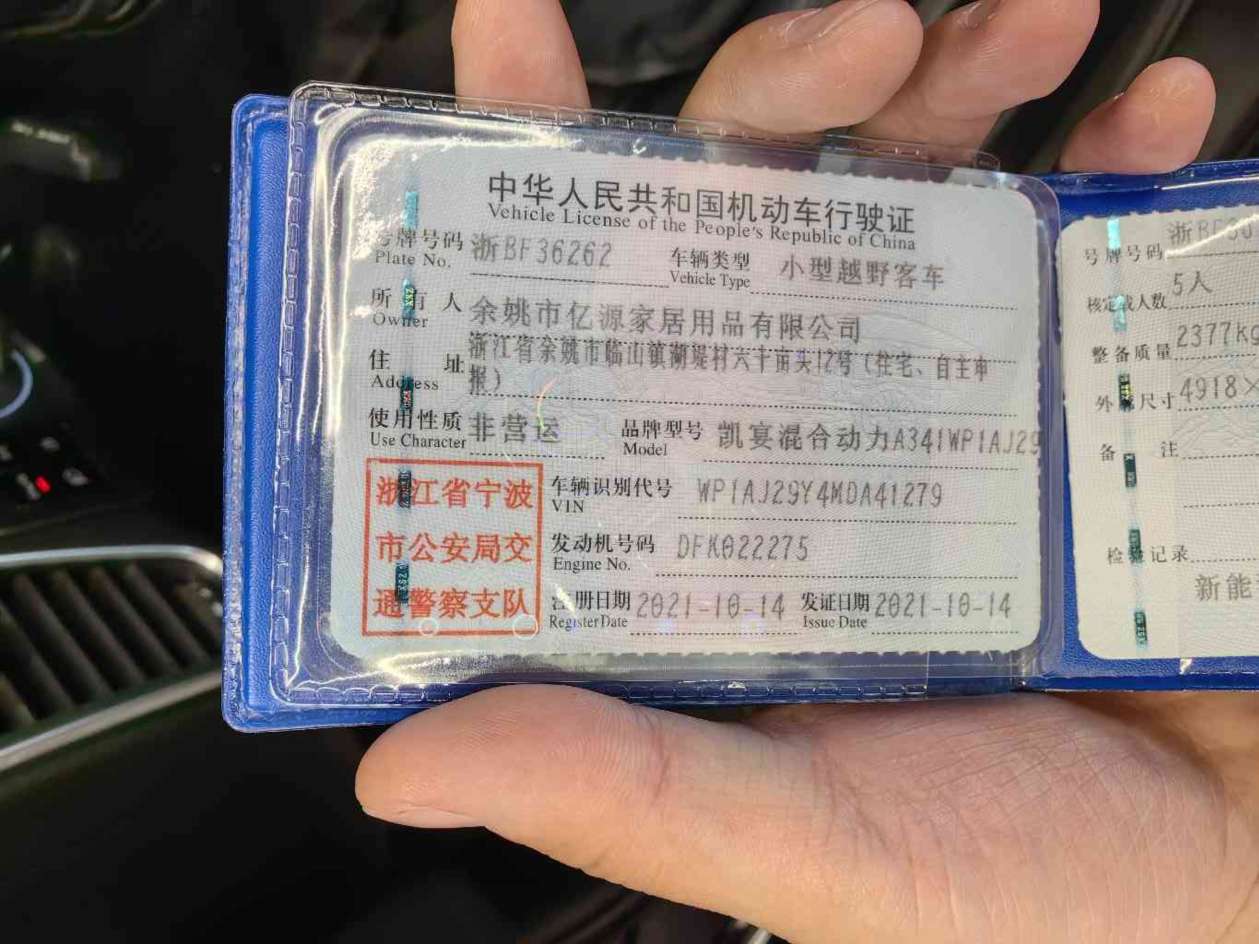 中华人民共和国机动车行驶证
Vehicle License of the People's Republic of China
号牌号码 浙BF36262 车辆类型 小型越野客车
Plate No. Vehicle Type
所有人 余姚市亿源家居用品有限公司
Owner
住址 浙江省余姚市临山镇湖堤村六十亩头12号（住宅、自主申
Address 报）
使用性质 非营运 品牌型号 凯宴混合动力A341WP1AJ29
Use Character Model
浙江省宁波
市公安局交
通警察支队
车辆识别代号 WP1AJ29Y4MDA41279
VIN
发动机号码 DFK022275
Engine No.
注册日期 2021-10-14 发证日期 2021-10-14
Register Date Issue Date
号牌号码
核定载人数 5人
整备质量 2377kg
外廓尺寸 4918×
备注
检验记录
新能